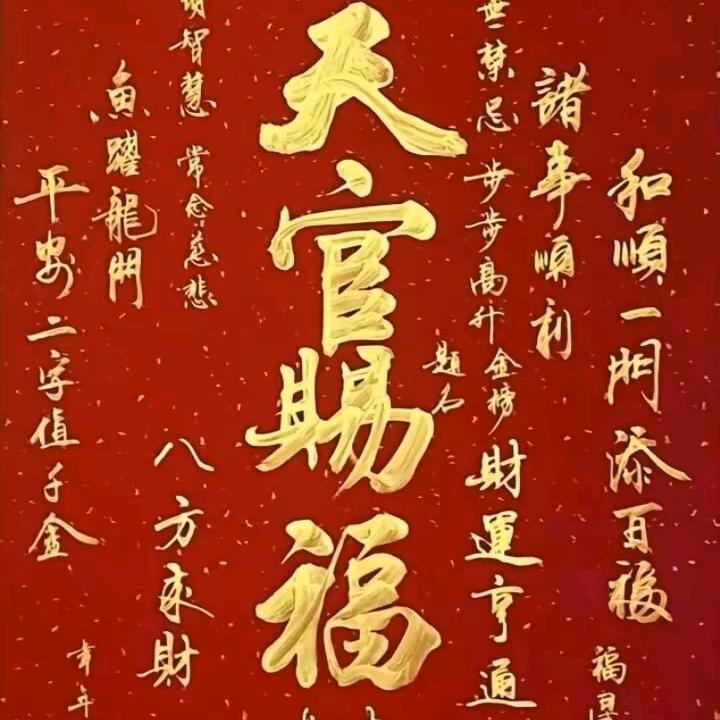 和順一門添百福
福
諸事順利
禁忌
步步高升
金榜
題名
財運亨通
天官賜福
智慧
常念慈悲
八方來財
魚躍龍門
平安二字值千金
年